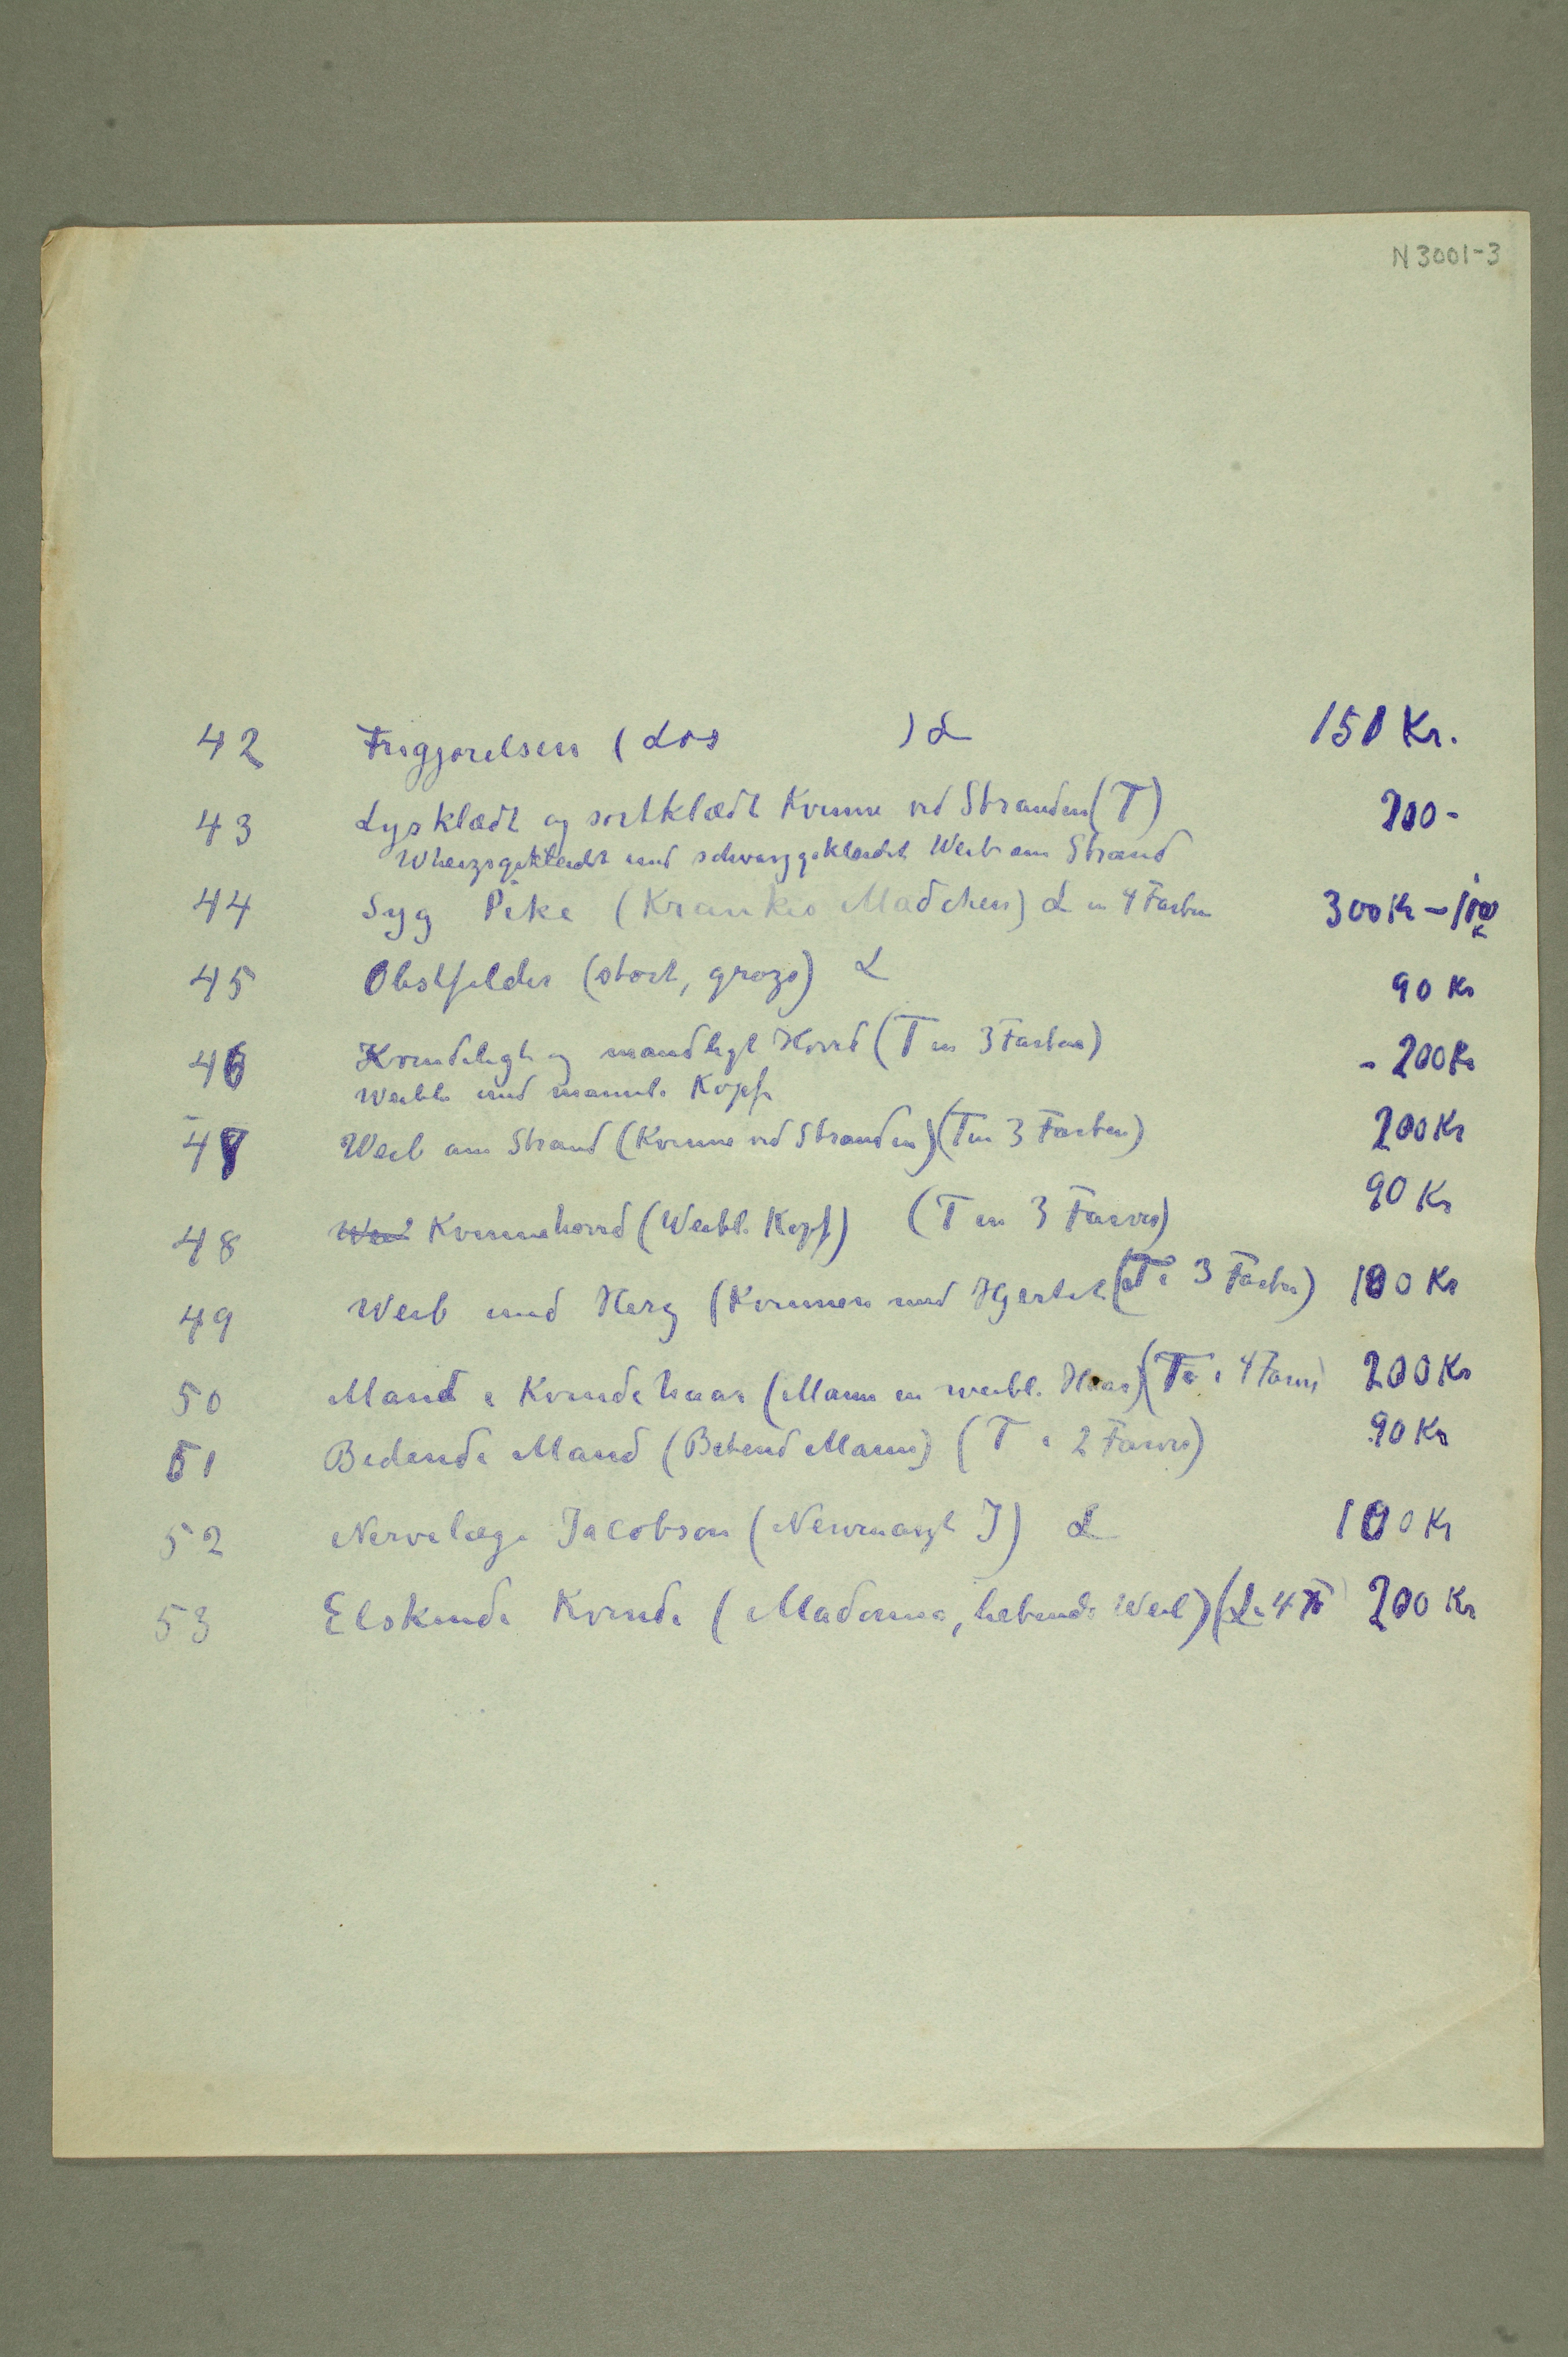 N 3001-3
42 Frigjørelsen ( Los ) L 150 Kr.
43 Lysklædt og sortklædt Kvinne ved Stranden (T) 200 -
und schwarzgekleidet Weib am Strand
44 Syg Pike (Krankes Mädchen) L in 4 Farben 300 Kr –
45 Obstfelder (stort, grozs) L 90 Kr
46 Kvindeligt og mandligt Hoved (T in 3 Farben) - 200 Kr
Weibl. und mannl. Kopf
47 Weib am Strand (Kvinne ved Stranden) (T in 3 Farben) 200 Kr
48 Kvinnehoved (Weibl. Kopf) (T in 3 Farver) 90 Kr
49 Weib und Herz (Kvinnen med Hjertet (T i 3 Farben) 100 Kr
50 Mand i Kvindehaar (Mann in weibl. Haar) (T i 4 Farver) 200 Kr
51 Bedende Mand (Betend Mann) (T i 2 Farver) 90 Kr
52 Nervelæge Jacobson (Nervenarzt J) L 100 Kr
53 Elskende Kvinde (Madonna, liebende Weib) (L i 4 F) 200 Kr